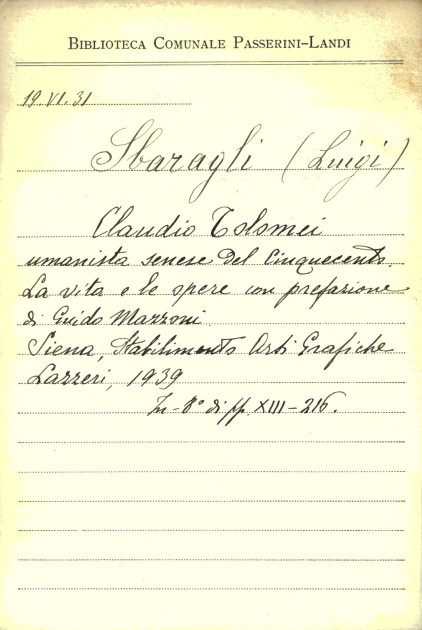 BIBLIOTECA COMUNALE PASSERINI-LANDI
19.VI.31
Sbaragli (Luigi)
Claudio Tolomei
umanista senese del Cinquecento.
La vita e le opere con prefazione
di Guido Mazzoni
Siena, Stabilimento Arti Grafiche
Lazzeri, 1939
In-8° di pp. XIII-216.